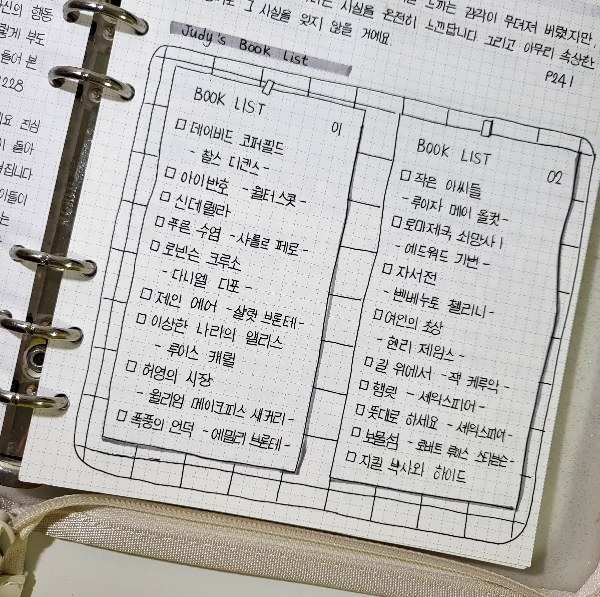 신의 항동
렇게 부도
들어 본
228
요 진심
이 돌아
겨집니다
이들이
는
느끼는 감각이 무뎌져 버렸지만
사실을 온전히 느낀답니다. 그리고 아무리 속상한
그 사실을 잊지 않을 거예요.
P241
Judy's Book List
BOOK LIST
01
□ 데이비드 코퍼필드
- 찰스 디킨스 -
□ 아이반호 - 월터 스콧 -
□ 신데렐라
□ 푸른 수염 - 샤를로 페로 -
□ 로빈슨 크루소
- 다니엘 디포 -
□ 제인 에어 - 샬럿 브론테 -
□ 이상한 나라의 앨리스
- 루이스 캐럴
□ 허영의 시장
- 윌리엄 메이크피스 새커리 -
□ 폭풍의 언덕 - 에밀리 브론테 -
BOOK LIST
02
□ 작은 아씨들
- 루이자 메이 올컷 -
□ 로마제국 쇠망사 1
- 에드워드 기번 -
□ 자서전
- 벤베누토 첼리니 -
□ 여인의 초상
- 헨리 제임스 -
□ 길 위에서 - 잭 케루악 -
□ 햄릿 - 셰익스피어 -
□ 뜻대로 하세요 - 셰익스피어 -
□ 보물섬 - 로버트 루이스 스티븐슨 -
□ 지킬 박사와 하이드